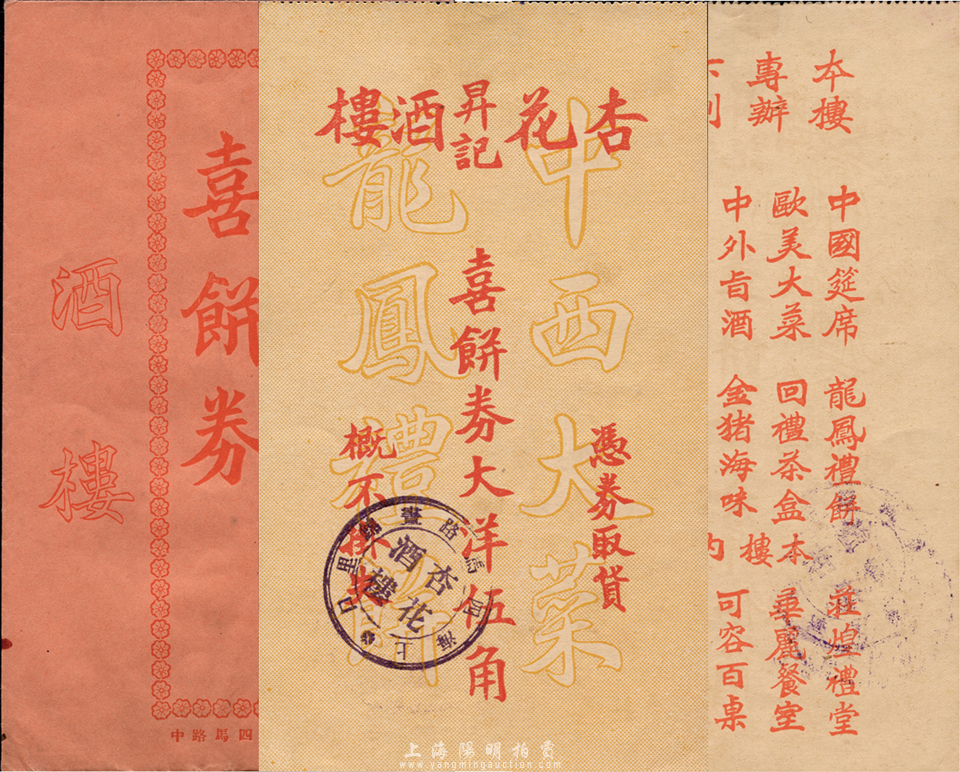 喜餅券
酒樓
中路馬四
杏花昇記酒樓
中西大菜
龍鳳禮餅
憑券取貨
喜餅券大洋伍角
概不掛失
杏花
酒樓
上海四馬路
里口
本樓
專辦
中國筵席
歐美大菜
中外旨酒
龍鳳禮餅
回禮茶盒
金猪海味
本樓
輝煌禮堂
華麗餐室
可容百桌
上海陽明拍賣
www.yangmingauction.com